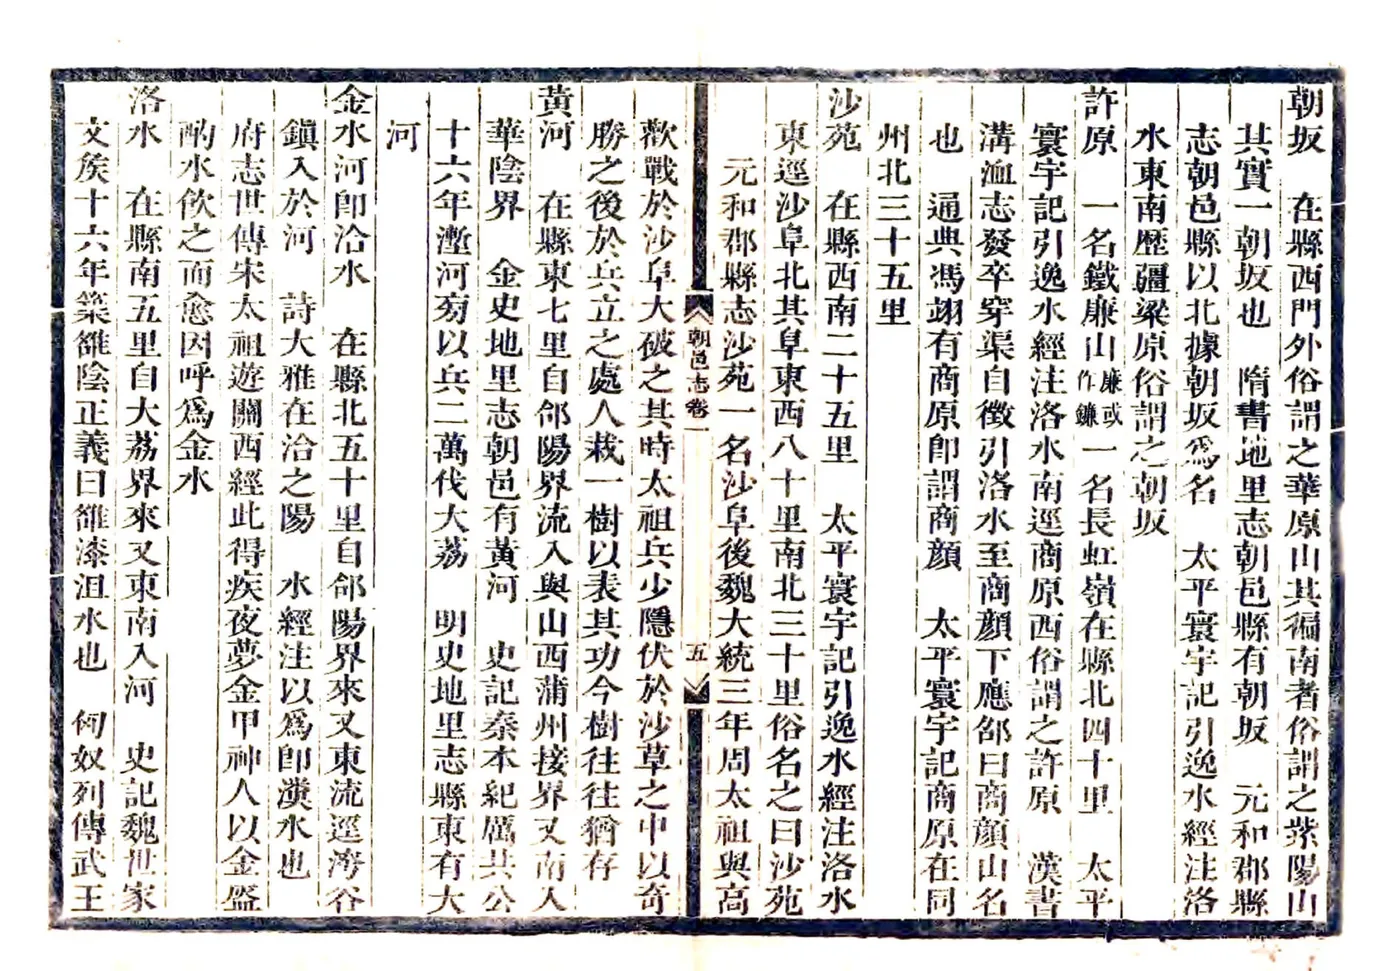 朝坂　在縣西門外俗謂之華原山其徧南者俗謂之紫陽山
其實一朝坂也　隋書地里志朝邑縣有朝坂　元和郡縣
志朝邑縣以北據朝坂爲名　太平寰宇記引逸水經注洛
水東南歷疆梁原俗謂之朝坂
許原　一名鐵廉山廉或作鐮一名長虹嶺在縣北四十里　太平
寰宇記引逸水經注洛水南逕商原西俗謂之許原　漢書
溝洫志發卒穿渠自徵引洛水至商顏下應劭曰商顏山名
也　通典馮翊有商原卽謂商顏　太平寰宇記商原在同
州北三十五里
沙苑　在縣西南二十五里　太平寰宇記引逸水經注洛水
東逕沙阜北其阜東西八十里南北三十里俗名之曰沙苑
元和郡縣志沙苑一名沙阜後魏大統三年周太祖與高
朝邑志卷一　五
歡戰於沙阜大破之其時太祖兵少隱伏於沙草之中以奇
勝之後於兵立之處人栽一樹以表其功今樹往往猶存
黃河　在縣東七里自郃陽界流入與山西蒲州接界又南入
華陰界　金史地里志朝邑有黃河　史記秦本紀厲共公
十六年塹河旁以兵二萬伐大荔　明史地里志縣東有大
河
金水河卽洽水　在縣北五十里自郃陽界來又東流逕
谷
鎭入於河　詩大雅在洽之陽　水經注以爲卽瀵水也
府志世傳宋太祖遊關西經此得疾夜夢金甲神人以金盌
酌水飮之而愈因呼爲金水
洛水　在縣南五里自大荔界來又東南入河　史記魏世家
文矦十六年築雒陰正義曰雒漆沮水也　匈奴列傳武王